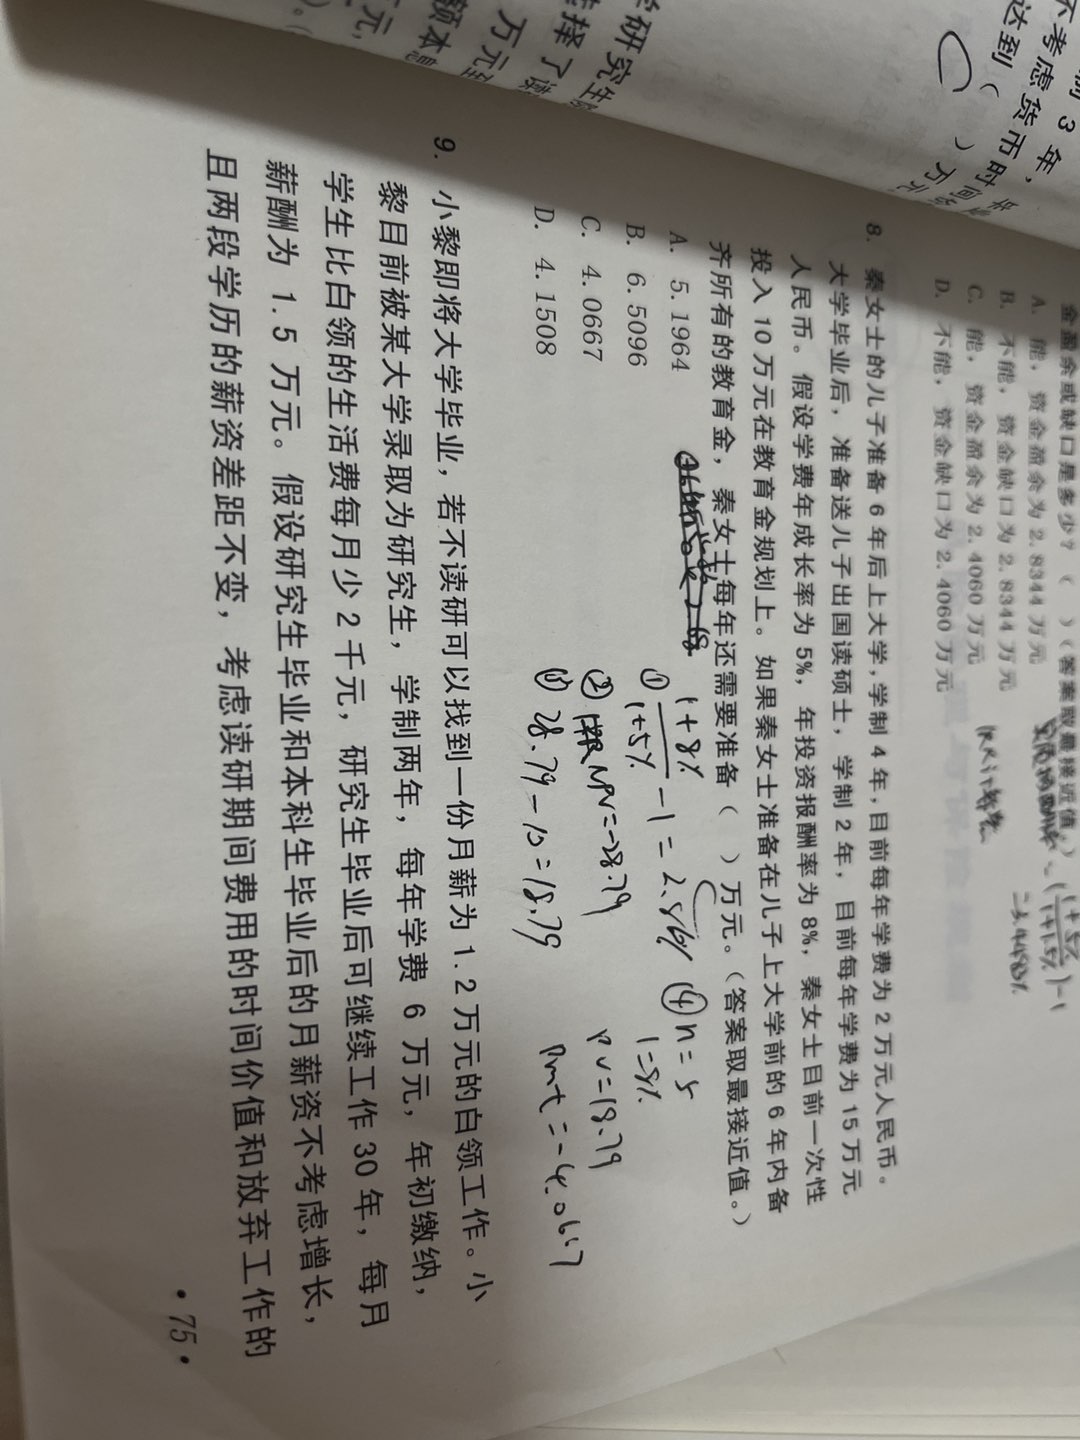 学研究生
择了读
万元
额本息
元,
制 3 年,
不考虑货币时间
达到( )万元
金盈余或缺口是多少?( )(答案取最接近值。)
A. 能,资金盈余为 2.8344 万元
B. 不能,资金缺口为 2.8344 万元
C. 能,资金盈余为 2.4060 万元
D. 不能,资金缺口为 2.4060 万元
8. 秦女士的儿子准备 6 年后上大学,学制 4 年,目前每年学费为 2 万元人民币。
大学毕业后,准备送儿子出国读硕士,学制 2 年,目前每年学费为 15 万元
人民币。假设学费年成长率为 5%,年投资报酬率为 8%,秦女士目前一次性
投入 10 万元在教育金规划上。如果秦女士准备在儿子上大学前的 6 年内备
齐所有的教育金,秦女士每年还需要准备( )万元。(答案取最接近值。)
A. 5.1964
B. 6.5096
C. 4.0667
D. 4.1508
① 1+8%
1+5%
-1=
② NPV=-28.79
③ 28.79-10=18.79
④ n=5
I=8%
PV=18.79
Pmt=-4.0667
9. 小黎即将大学毕业,若不读研可以找到一份月薪为 1.2 万元的白领工作。小
黎目前被某大学录取为研究生,学制两年,每年学费 6 万元,年初缴纳,
学生比白领的生活费每月少 2 千元,研究生毕业后可继续工作 30 年,每月
薪酬为 1.5 万元。假设研究生毕业和本科生毕业后的月薪资不考虑增长,
且两段学历的薪资差距不变,考虑读研期间费用的时间价值和放弃工作的
• 75 •